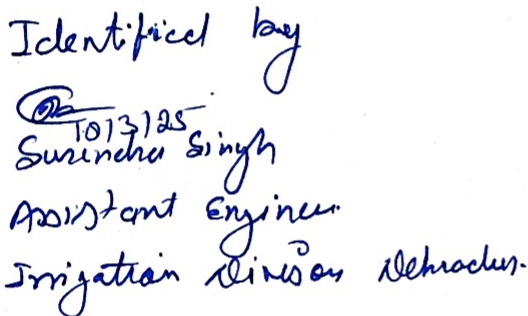 Identified by
10/3/25
Surendra Singh
Assistant Engineer
Irrigation Division Dehradun.